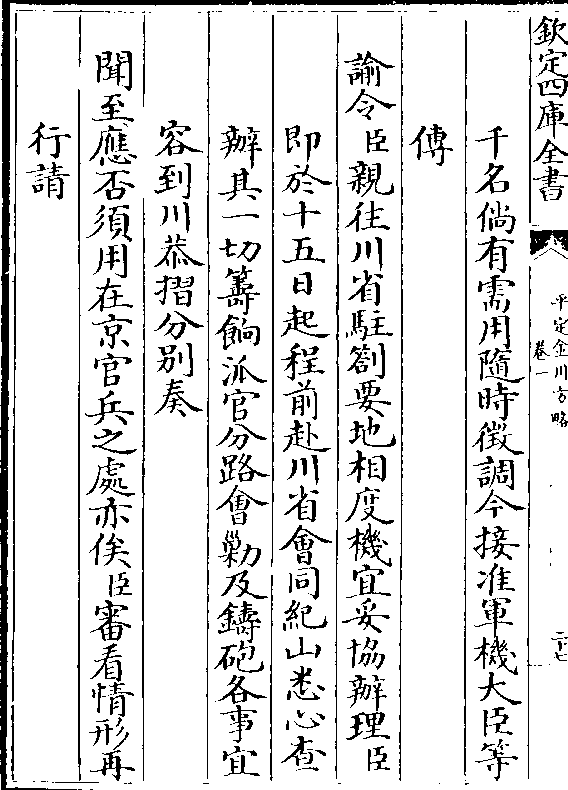 欽定四庫全書
平定金川方略
卷一
二十七
千名倘有需用隨時徵調今接准軍機大臣等
傳
諭令臣親往川省駐劄要地相度機宜妥協辦理臣
即於十五日起程前赴川省會同紀山悉心查
辦其一切籌餉派官分路會勦及鑄砲各事宜
容到川恭摺分别奏
聞至應否須用在京官兵之處亦俟臣審看情形再
行請